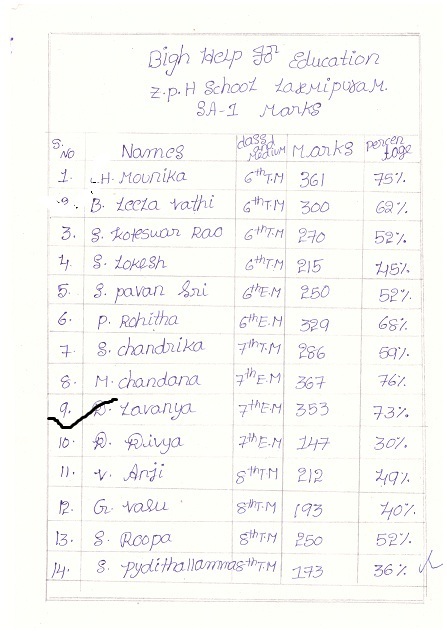 Bigh Help For Education
Z.P.H School Laxmipuram.
SA-1 Marks
S.No Names class and Medium Marks percentage
1. L.H. Mounika 6th T.M 361 75%
2. B. Leela vathi 6th T.M 300 62%
3. S. Koteswar Rao 6th T.M 270 52%
4. S. Lokesh 6th T.M 215 45%
5. S. pavan Sri 6th E.M 250 52%
6. P. Rohitha 6th E.M 329 68%
7. S. chandrika 7th T.M 286 59%
8. M. chandana 7th E.M 367 76%
9. D. Lavanya 7th E.M 353 73%
10. D. Divya 7th E.M 147 30%
11. V. Anji 8th T.M 212 49%
12. G. vasu 8th T.M 193 40%
13. S. Roopa 8th T.M 250 52%
14. S. pydithallamma 8th T.M 173 36%